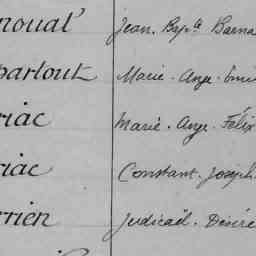 noual Jean. Bapte Barna
partout Marie. Ange. Émi
riac Marie. Ange. Félix
riac Constant. Joseph
rrien Judicaël. Désiré